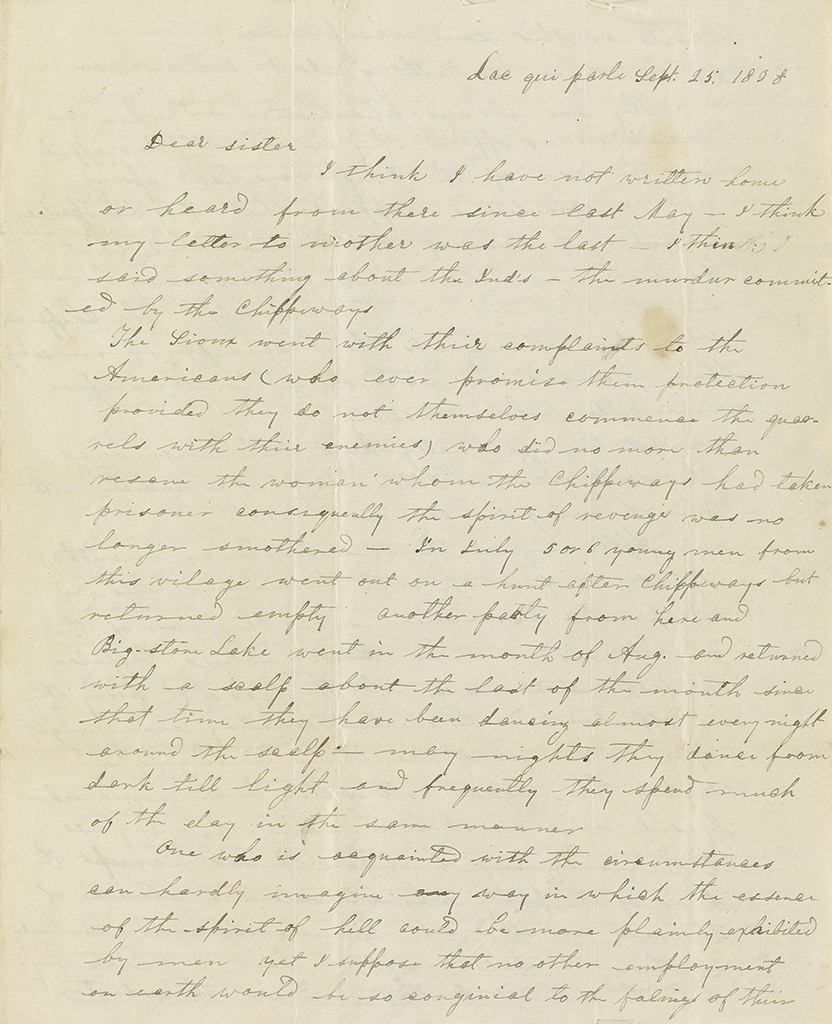 Lac qui parle Sept. 25. 1838
Dear sister
I think I have not written home
or heard from there since last May — I think
my letter to mother was the last — I think I
said something about the Ind's — the murdur commit-
ed by the Chippeways
The Sioux went with thier complaints to the
Americans (who ever promise them protection
provided they do not themselves commence the quar-
rels with thier enemies) who did no more than
rescue the woman whom the Chippeways had taken
prisoner consequently the spirit of revenge was no
longer smothered — In July 5 or 6 young men from
this vilage went out on a hunt after Chippeways but
returned empty another party from here and
Big-stone Lake went in the month of Aug. and returned
with a scalp about the last of the month since
that time they have been dancing almost every night
around the scalp — many nights they dance from
dark till light and frequently they spend much
of the day in the same manner
One who is acquainted with the circumstances
can hardly imagine any way in which the essence
of the spirit of hell could be more plainly exhibited
by men yet I suppose that no other employment
on earth would be so conginial to the falings of thier